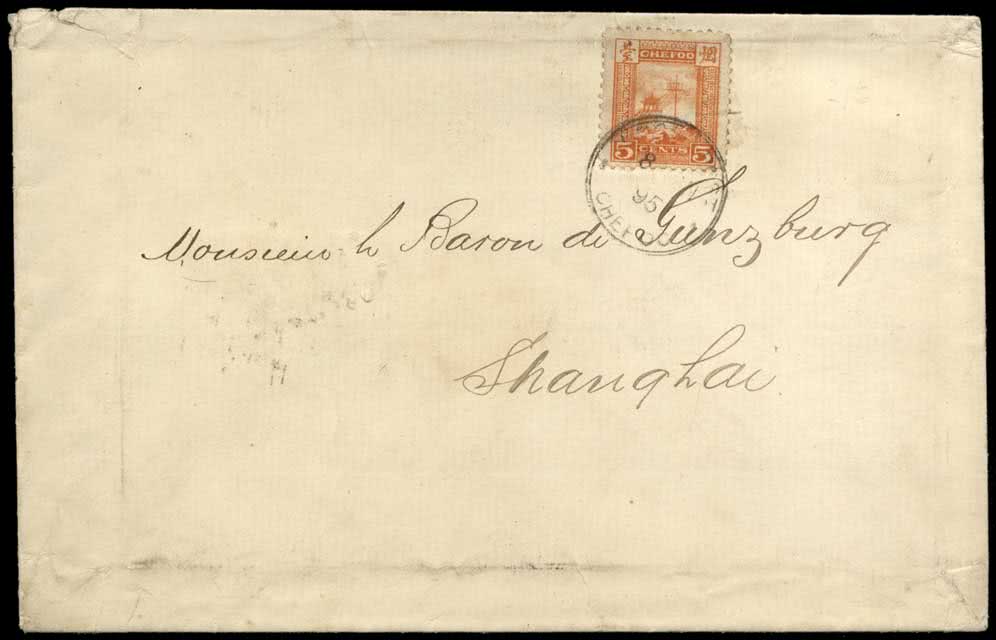 烟 臺
CHEFOO
5 CENTS 5
8
95
CHEFOO
Monsieur le Baron de Gunzburg
Shanghai